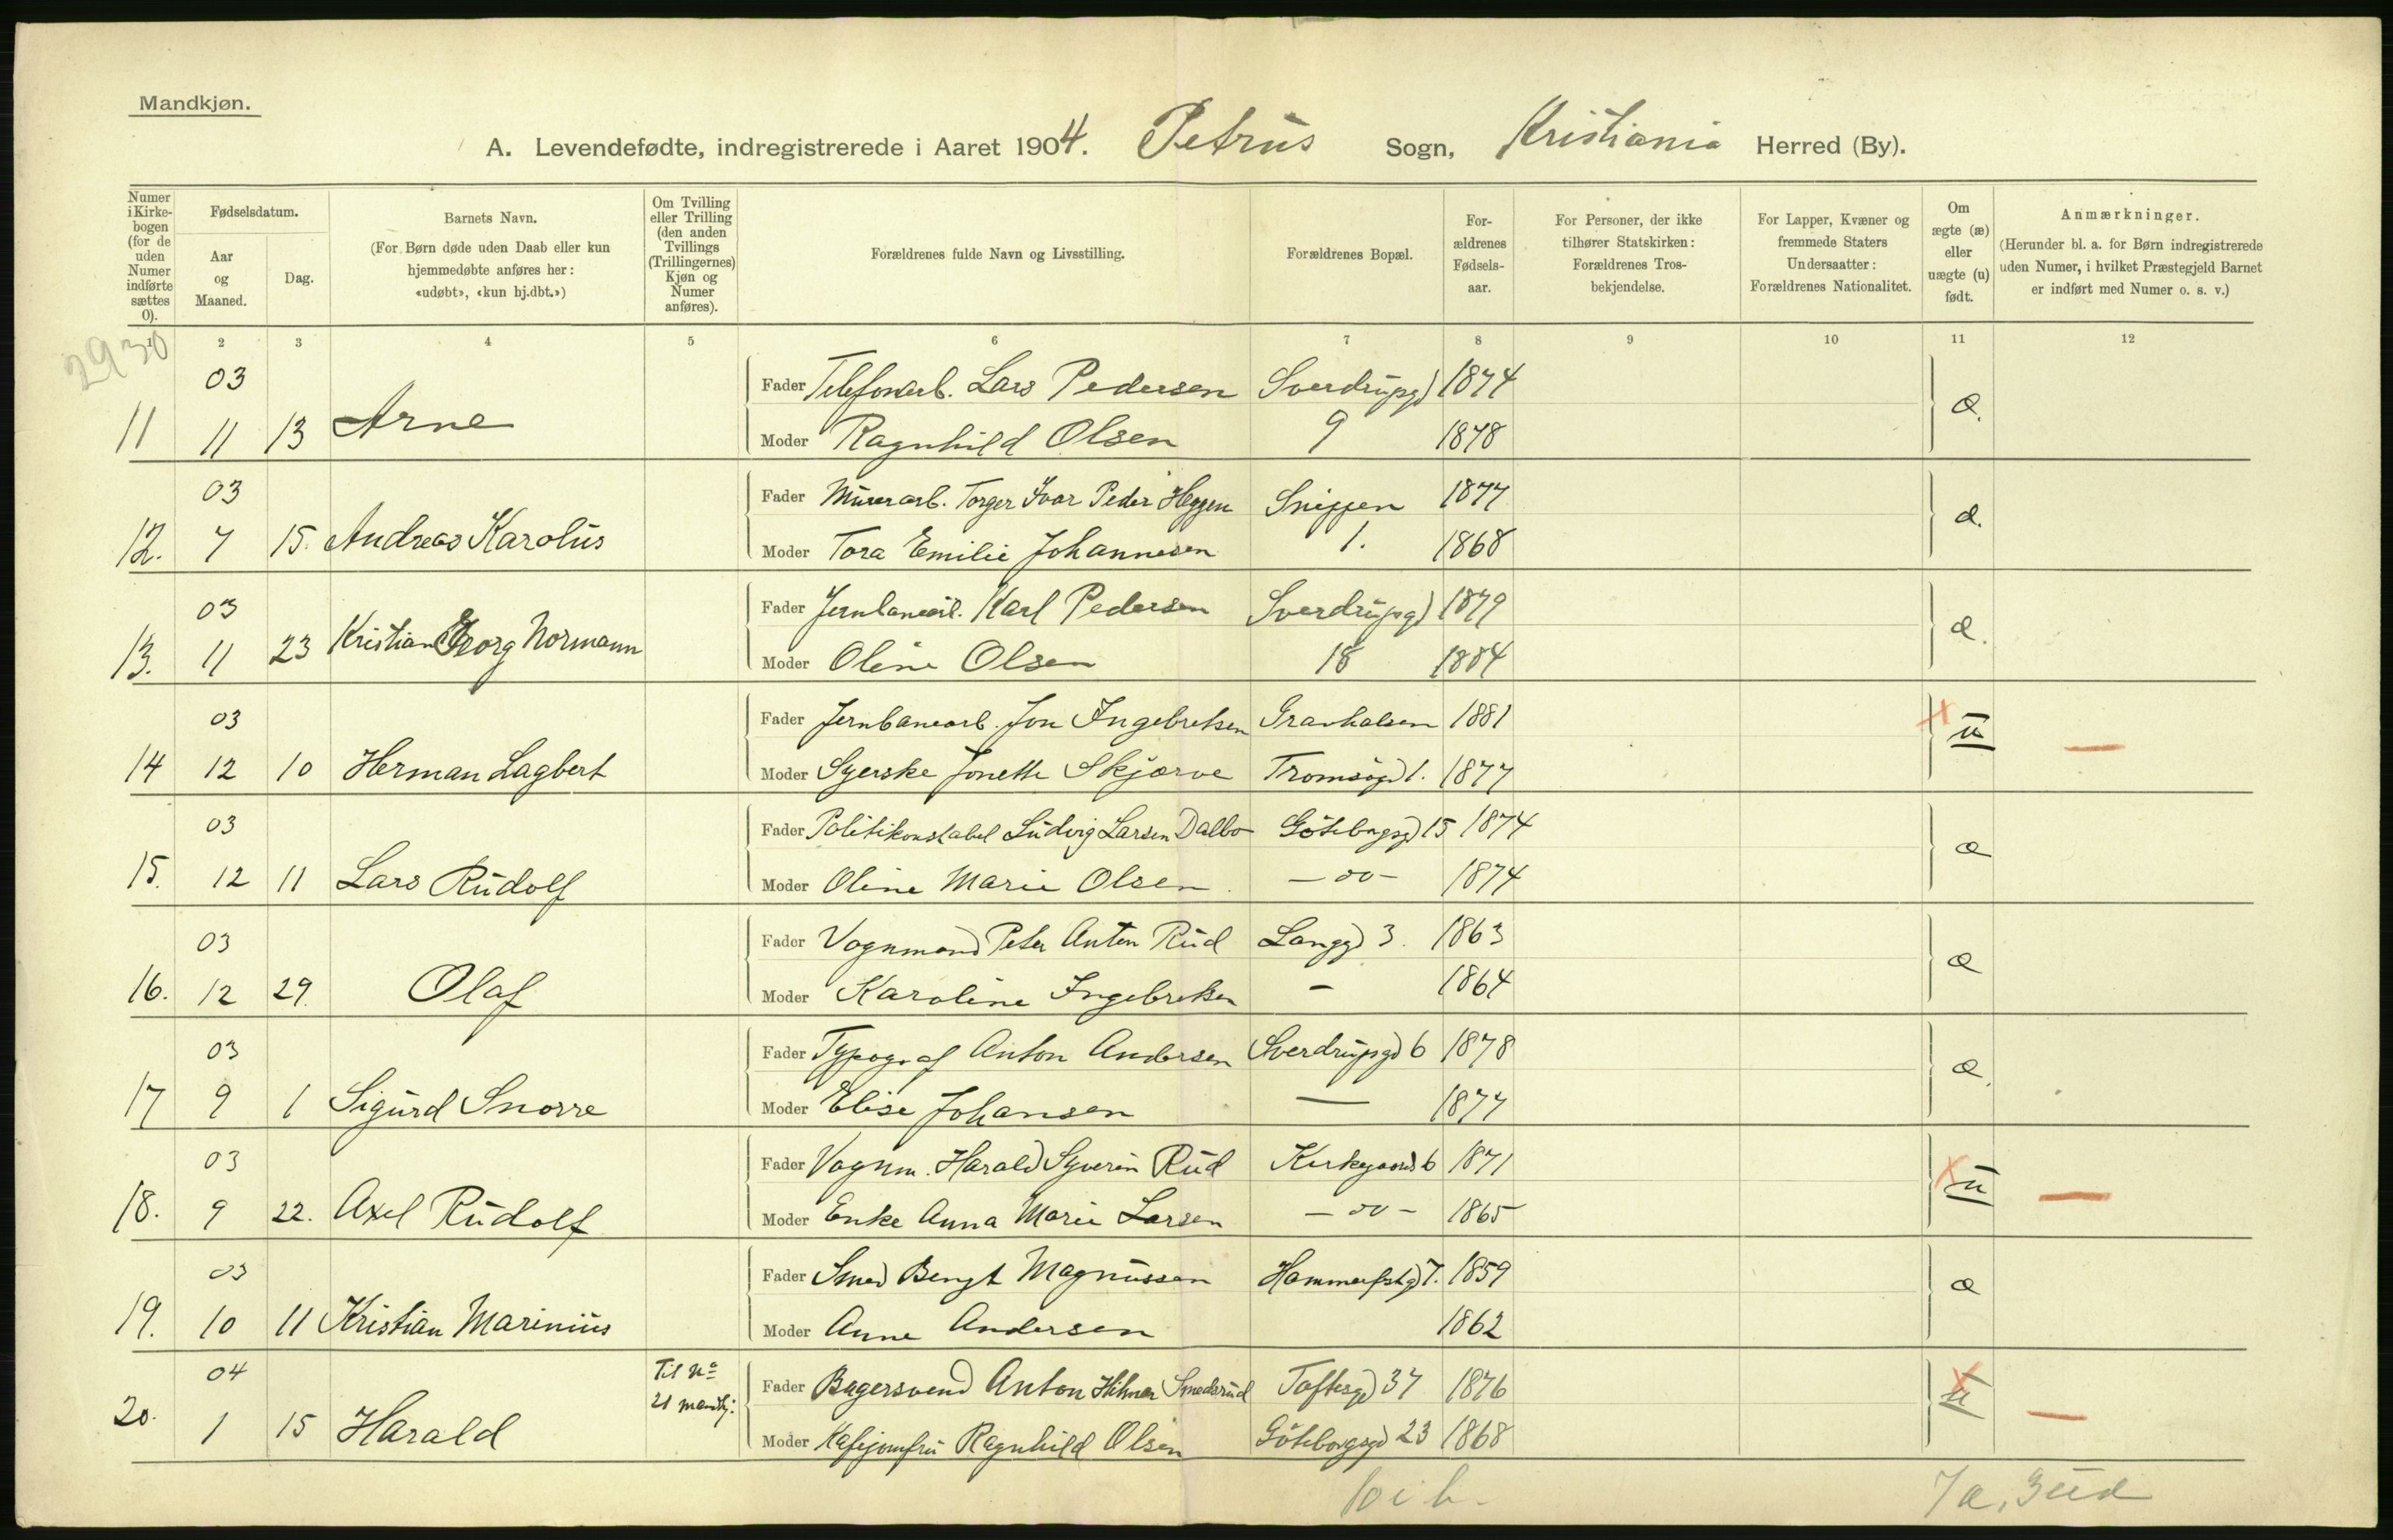 Mandkjøn.
A. Levendefødte, indregistrerede i Aaret 1904. Petrus Sogn, Kristiania Herred (By).
Numer i Kirke-bogen (for de uden Numer indførte sættes 0).
Fødselsdatum.
Aar og Maaned.
Dag.
Barnets Navn.
(For Børn døde uden Daab eller kun hjemmedøbte anføres her: «udøbt», «kun hj.dbt.»)
Om Tvilling eller Trilling (den anden Tvillings (Trillingernes) Kjøn og Numer anføres).
Forældrenes fulde Navn og Livsstilling.
Forældrenes Bopæl.
For-ældrenes Fødsels-aar.
For Personer, der ikke tilhører Statskirken: Forældrenes Tros-bekjendelse.
For Lapper, Kvæner og fremmede Staters Undersaatter: Forældrenes Nationalitet.
Om ægte (æ) eller uægte (u) født.
Anmærkninger.
(Herunder bl. a. for Børn indregistrerede uden Numer, i hvilket Præstegjeld Barnet er indført med Numer o. s. v.)
1 2 3 4 5 6 7 8 9 10 11 12
2930
03 Fader Telefonarb. Lars Pedersen Sverdrupgd 1874
11 11 13 Arne Moder Ragnhild Olsen 9 1878 æ.
03 Fader Murerarb. Torger Ivar Peder Heggen Snippen 1877
12. 7 15. Andreas Karolus Moder Tora Emilie Johannesen 1. 1868 æ.
03 Fader Jernbanearb. Karl Pedersen Sverdrupgd 1879
13. 11 23 Kristian Georg Normann Moder Oline Olsen 18 1884 æ.
03 Fader Jernbanearb. Jon Ingebretsen Gravhalsen 1881
14 12 10 Herman Lagbert Moder Syerske Jonette Skjærve Tromsøgd 1. 1877 u
03 Fader Politikonstabel Ludvig Larsen Dalbo Göteborgsgd 15 1874
15. 12 11 Lars Rudolf Moder Oline Marie Olsen. – oo – 1874 æ
03 Fader Vognmand Peter Anton Rud Langgd 3. 1863
16. 12 29. Olaf Moder Karoline Ingebretsen – 1864 æ
03 Fader Typograf Anton Andersen Sverdrupgd 6 1878
17 9 1 Sigurd Snorre Moder Elise Johansen — 1877 æ.
03 Fader Vognm. Harald Syverin Rud Kirkegaard 6 1871
18. 9 22. Axel Rudolf Moder Enke Anna Marie Larsen – oo – 1865 u
03 Fader Smed Bengt Magnussen Hammerfstgd 7. 1859
19. 10 11 Kristian Marinius Moder Anne Andersen 1862 æ
04 Til No 21 mandkj. Fader Bagersvend Anton Hilmar Smedsrud Toftesgd 37 1876
20. 1 15 Harald Moder Kafejomfru Ragnhild Olsen Göteborgsgd 23 1868 u
10 i b. 7 æ, 3 uæ